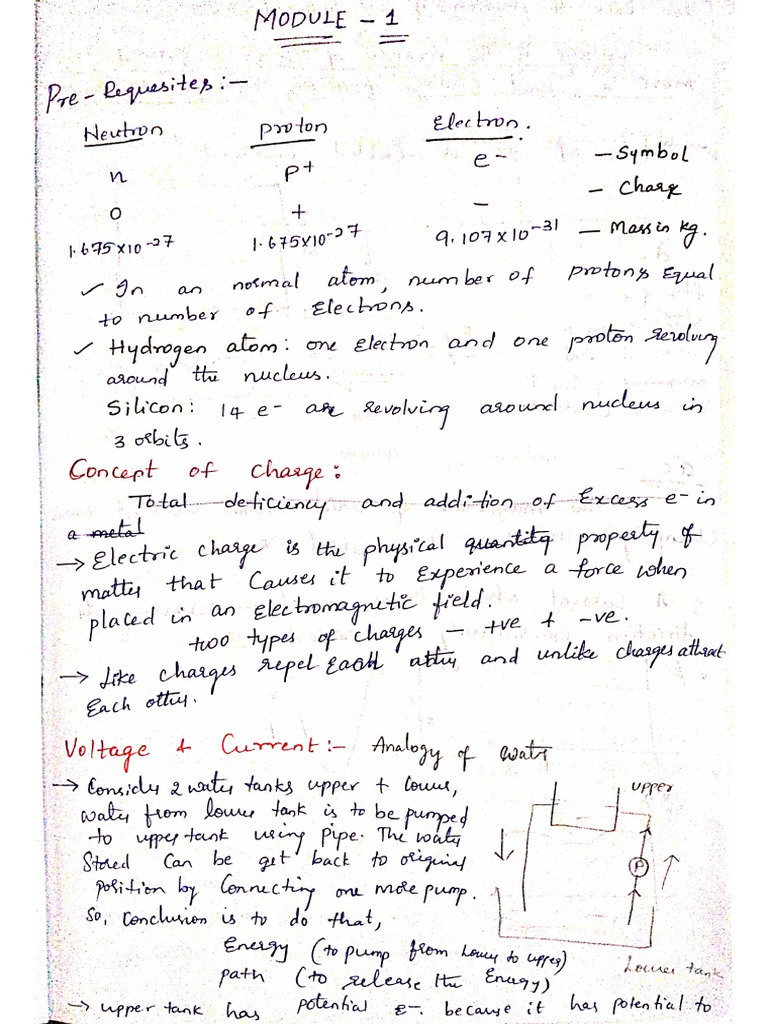 MODULE - 1
Pre-Requesites:-
Neutron Proton Electron.
n P+ e- - Symbol
0 + - - Charge
1.675x10-27 1.675x10-27 9.107x10-31 - Mass in kg.
✓ In an normal atom, number of protons Equal
to number of Electrons.
✓ Hydrogen atom: one Electron and one proton revolving
around the nucleus.
Silicon: 14 e- are revolving around nucleus in
3 orbits.
Concept of Charge:
Total deficiency and addition of Excess e- in
a metal
→ Electric charge is the physical quantity property of
matter that Causes it to Experience a force when
placed in an Electromagnetic field.
two types of charges - +ve + -ve.
→ Like charges repel Each other and unlike charges attract
Each other.
Voltage & Current:- Analogy of water
→ Consider 2 water tanks upper + lower,
water from lower tank is to be pumped
to upper tank using pipe. The water
Stored Can be get back to original
position by Connecting one more pump.
So, Conclusion is to do that,
Energy (to pump from Lower to upper)
path (to release the Energy)
→ upper tank has potential E-. because it has potential to
upper
P
Lower tank